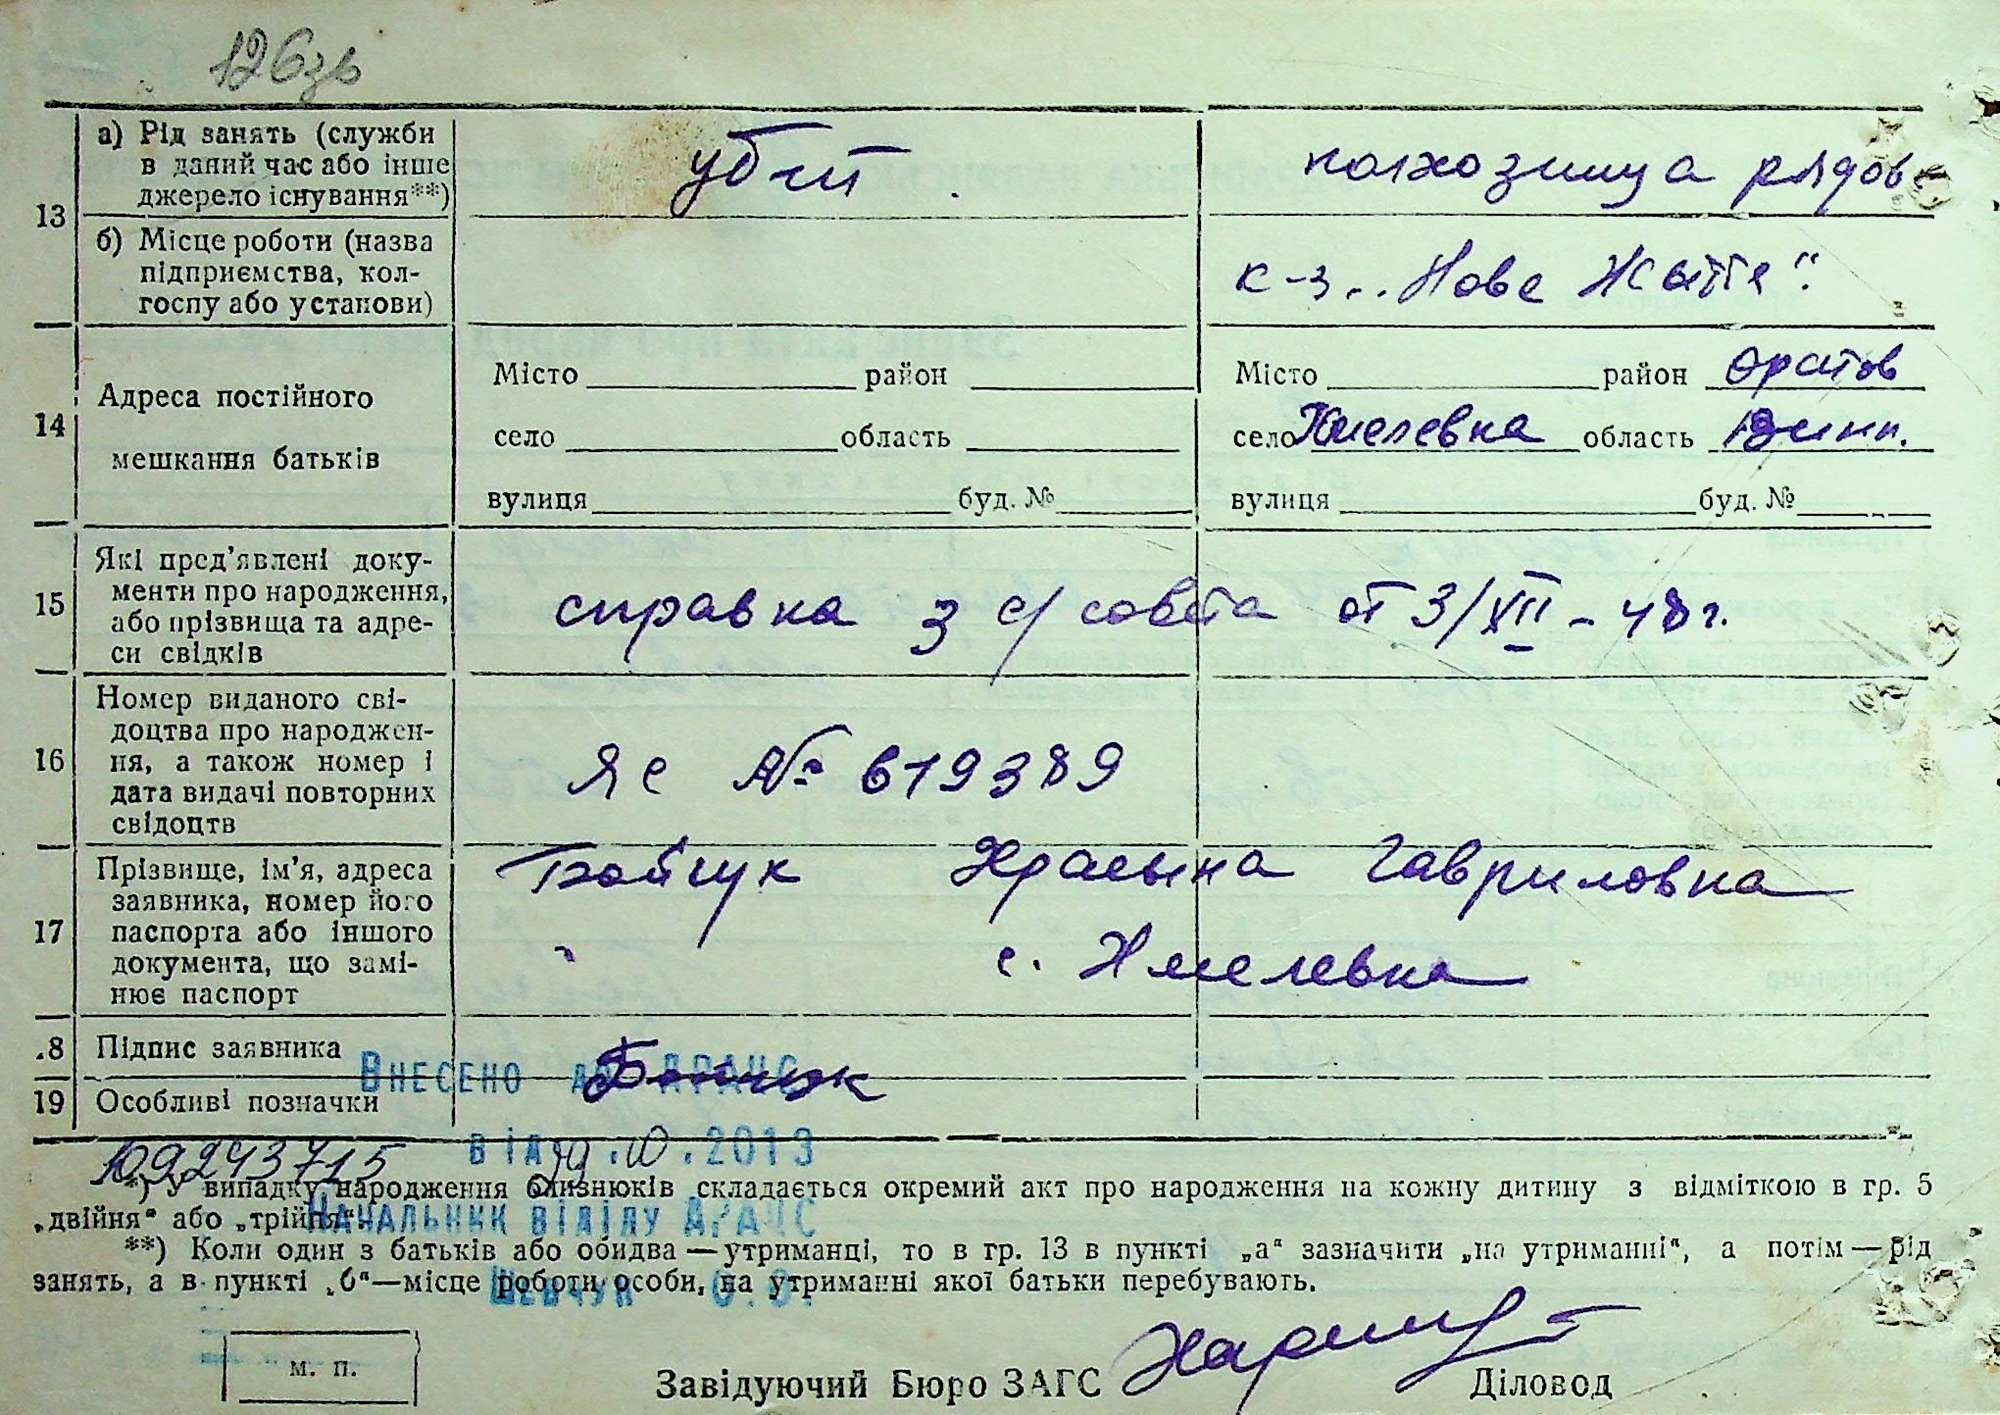 126зв
13 а) Рід занять (служби в даний час або інше джерело існування**) убит колхозница рядов
б) Місце роботи (назва підприємства, колгоспу або установи) к-з „Нове Життя"
14 Адреса постійного мешкання батьків
Місто район Місто район Оратов
село область село Хмелевка область Винн.
вулиця буд. № вулиця буд. №
15 Які пред'явлені документи про народження, або прізвища та адреси свідків
справка з с/совета от 3/XII-48г.
16 Номер виданого свідоцтва про народження, а також номер і дата видачі повторних свідоцтв
ЯС № 619389
17 Прізвище, ім'я, адреса заявника, номер його паспорта або іншого документа, що замінює паспорт
Бойчук Гавриловна
с. Хмелевка
.8 Підпис заявника
Внесено до ДРАЦС
19 Особливі позначки
від 29.10.2013
109243715
*) У випадку народження близнюків складається окремий акт про народження на кожну дитину з відміткою в гр. 5
„двійня" або „трійня".
Начальник відділу ДРАЦС
**) Коли один з батьків або обидва — утриманці, то в гр. 13 в пункті „а" зазначити „на утриманні", а потім — рід
занять, а в пункті „б"—місце роботи особи, на утриманні якої батьки перебувають.
Шевчук
м. п.
Завідуючий Бюро ЗАГС Діловод